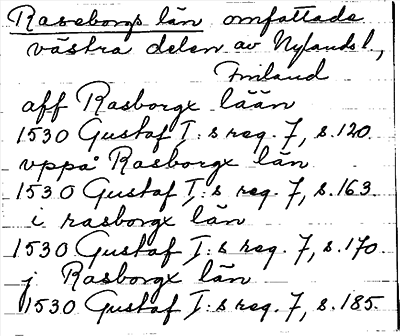 Raseborgs län omfattade
västra delen av Nylands l.,
Finland
aff Rasborgx lään
1530 Gustaf I:s reg. 7, s. 120.
vppå Rasborgx län
1530 Gustaf I:s reg. 7, s. 163.
i rasborgx län
1530 Gustaf I:s reg. 7, s. 170.
j Rasborgx län
1530 Gustaf I:s reg. 7, s. 185.